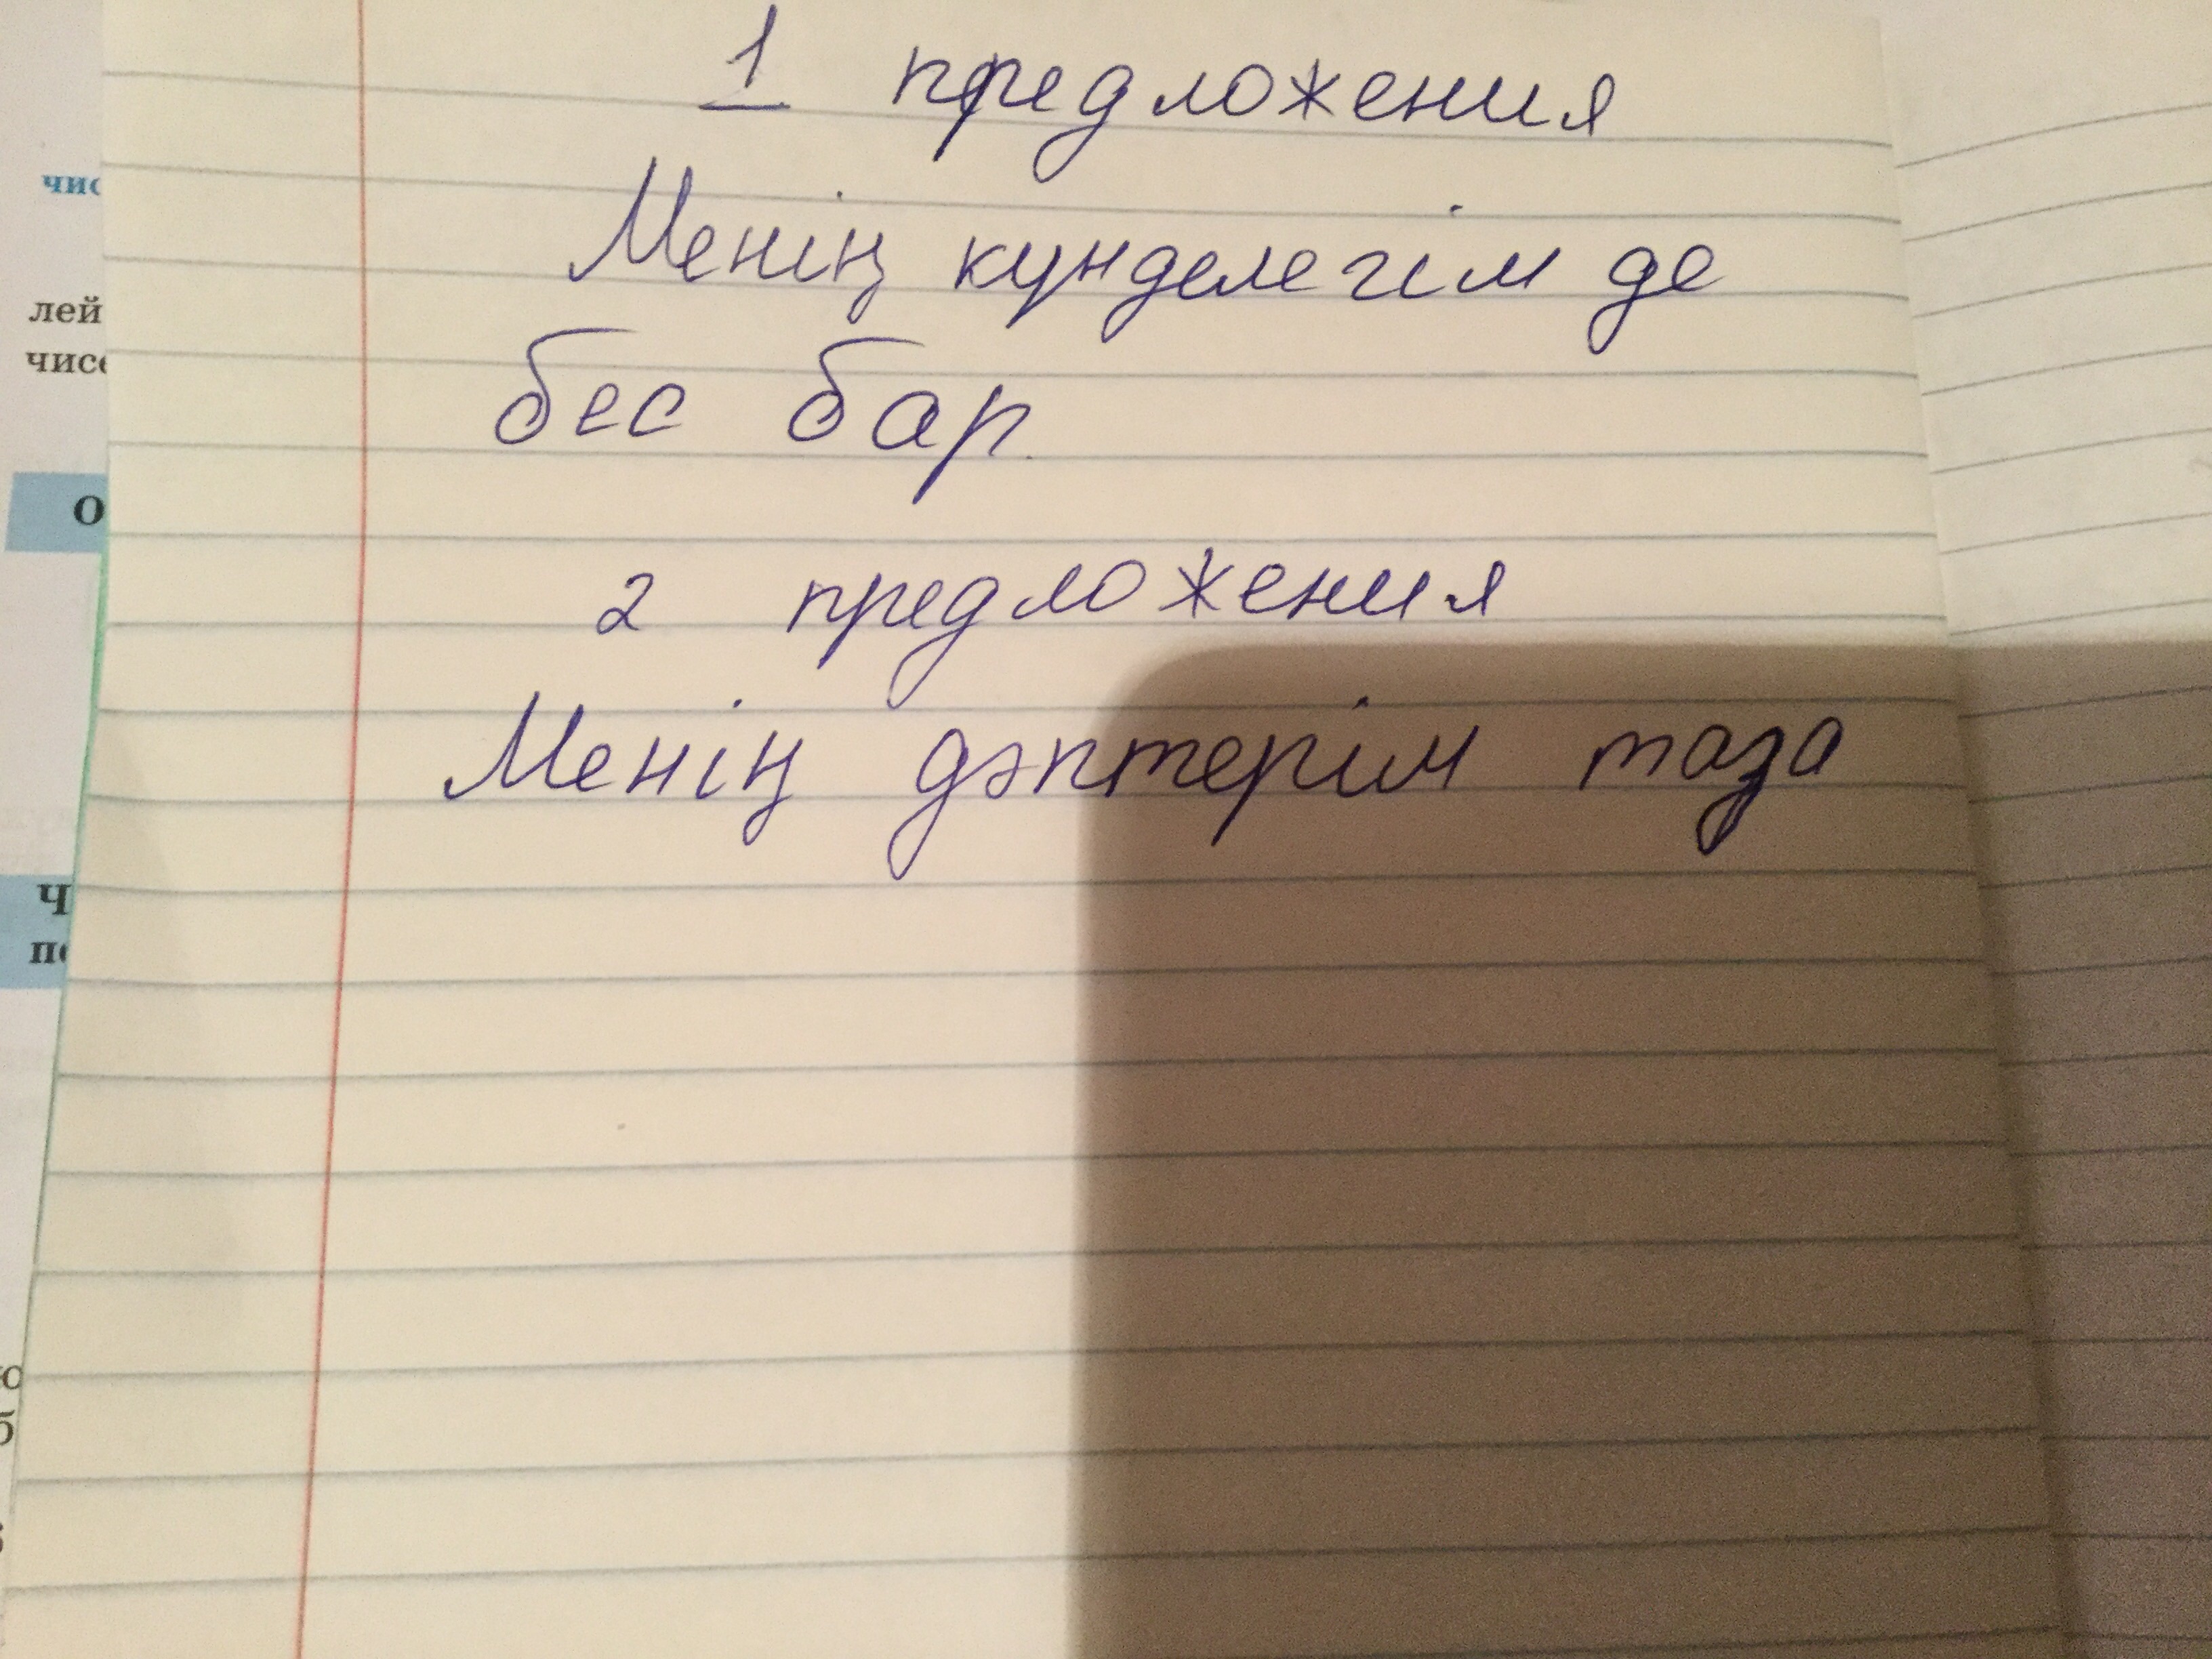 1 предложения
Менің кунделегім де
бес бар.
2 предложения
Менің дәптерім таза
лей
О
Ч